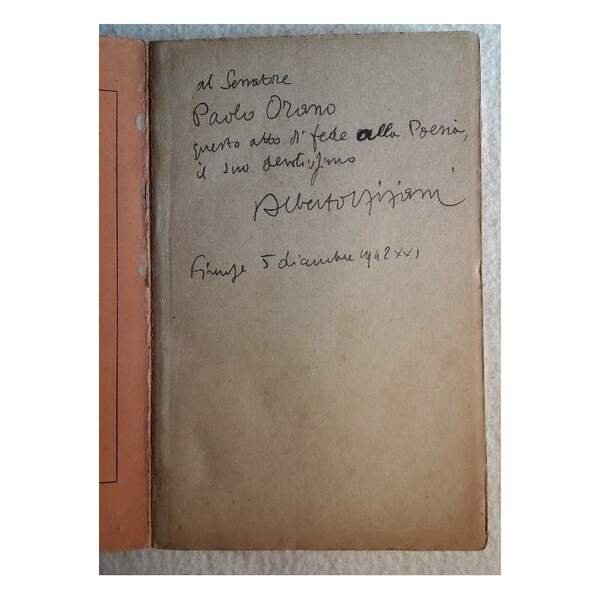 al Senatore
Paolo Orano
questo atto di fede alla Poesia,
il suo devotissimo
Alberto Viviani
Firenze 5 dicembre 1942 XXI